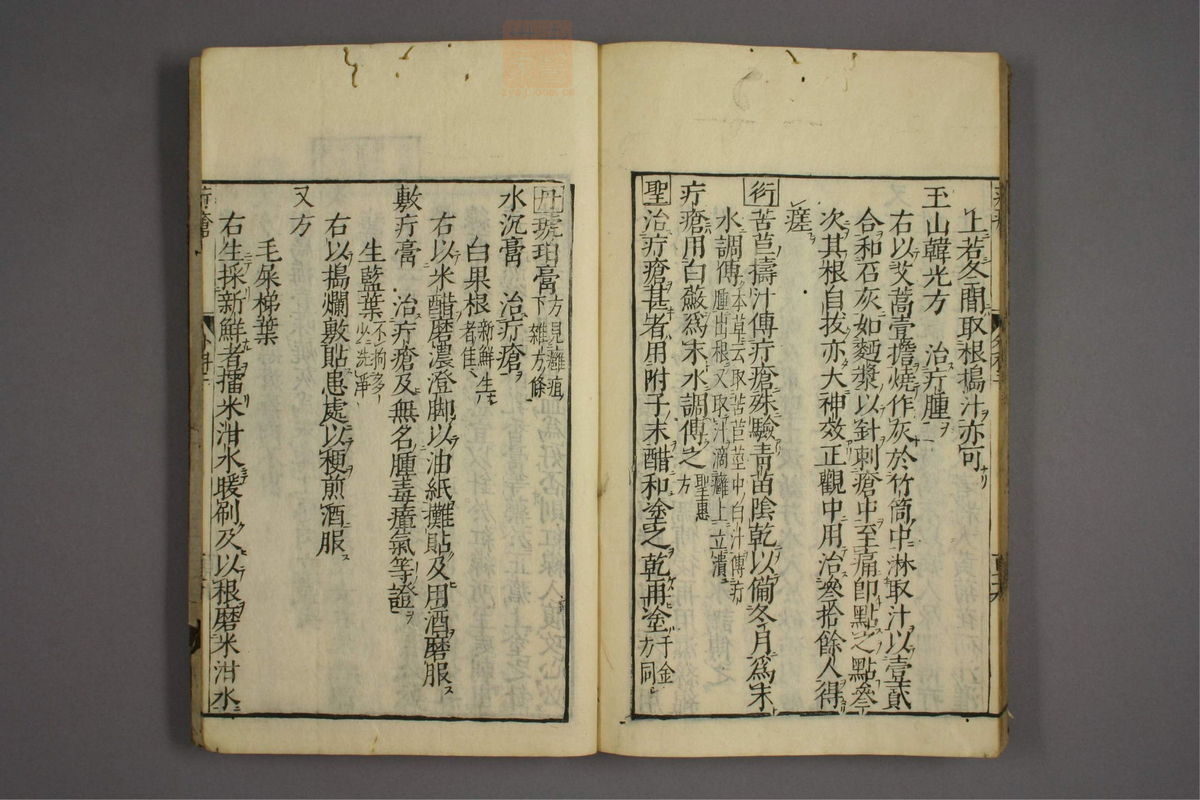 上若冬間取根搗汁亦可
玉山韓光方　治疔腫
右以艾蒿壹擔燒作灰於竹筒中淋取汁以壹貳
合和石灰如麵漿以針刺瘡中至痛卽點之點叄
次其根自拔亦大神效正觀中用治叄拾餘人得
瘥
衍 苦苣擣汁傅疔瘡殊驗青苗陰乾以備冬月爲末
水調傅 本草云取苦苣莖中白汁傅疔腫出根又取汁滴癰上立潰
疔瘡用白蘞爲末水調傅之 聖惠方
聖 治疔瘡甚者用附子末醋和塗之乾再塗 千金方同
丹 琥珀膏 方見癰疽下雜方條
水沉膏　治疔瘡
白果根 新鮮生者佳
右以米醋磨濃澄脚以油紙攤貼及用酒磨服
敷疔膏　治疔瘡及無名腫毒瘴氣等證
生藍葉 不拘多少洗淨
右以搗爛敷貼患處以梗煎酒服
又方
毛柋梯葉
右生採新鮮者擂米泔水暖刷及以根磨米泔水